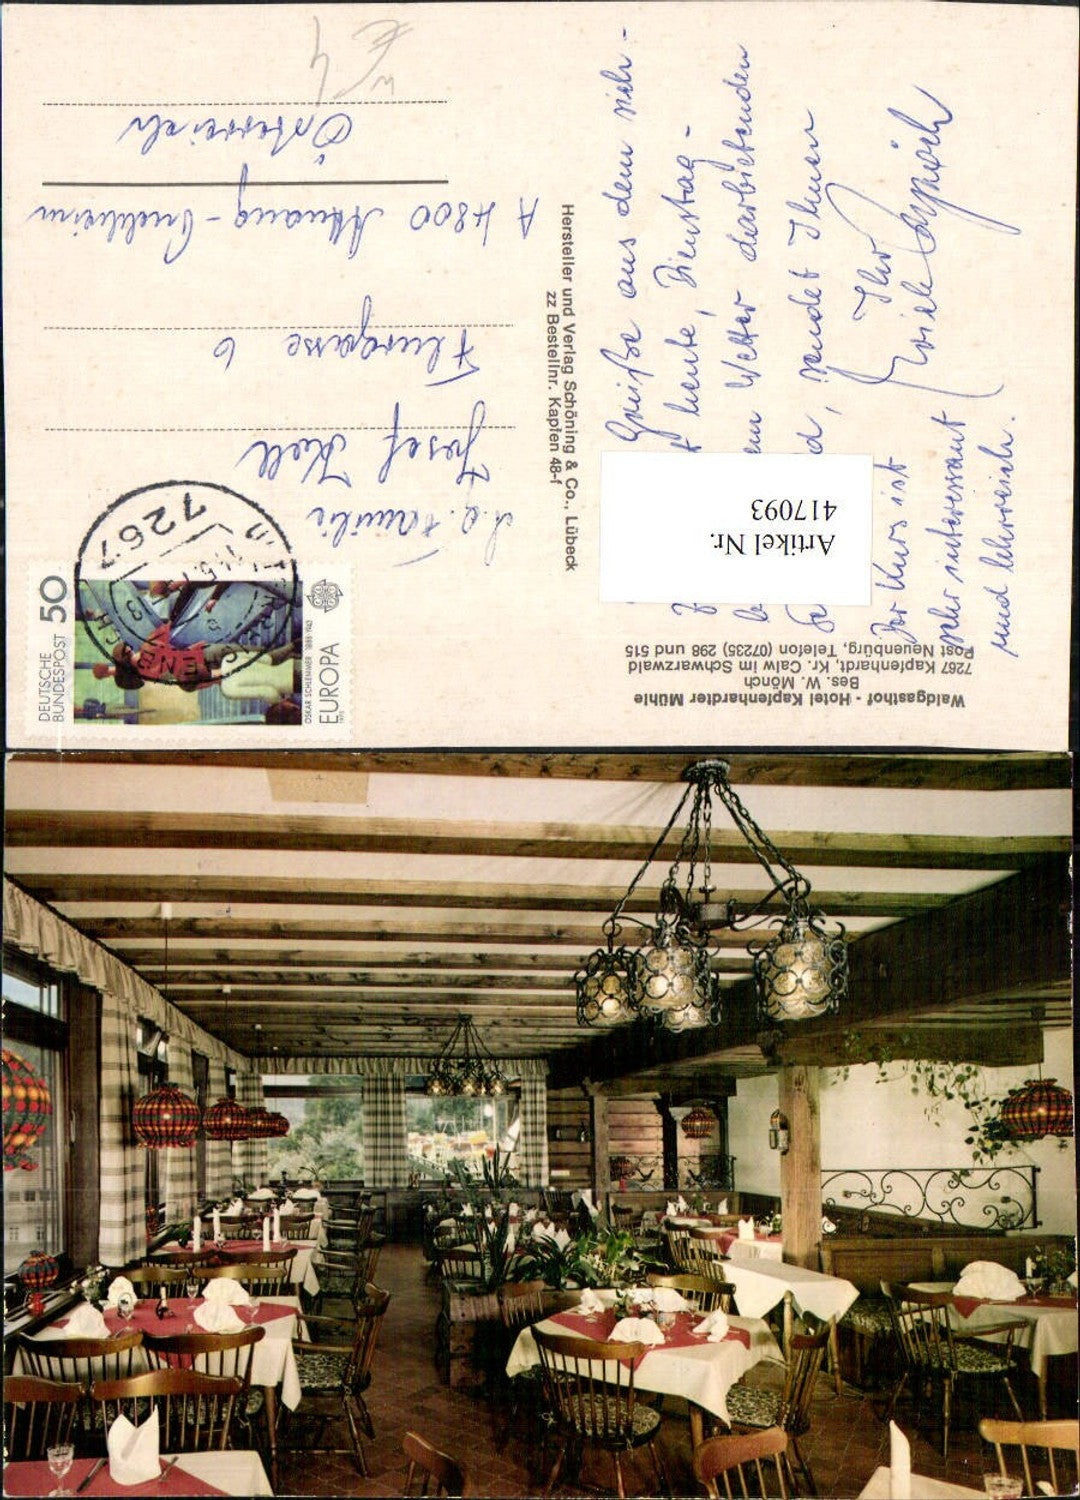 Waldgasthof - Hotel Kapfenhardter Mühle
Bes. W. Mönch
7267 Kapfenhardt, Kr. Calw im Schwarzwald
Post Neuenbürg, Telefon (07235) 298 und 515
Grüße aus dem sich
heute, Dienstag-
Wetter darbietenden
, sendet Ihnen
Ihr
Der Kurs ist
sehr interessant
und lehrreich.
Viele
Artikel Nr.
417093
Hersteller und Verlag Schöning & Co., Lübeck
zz Bestellnr. Kapfen 48-f
DEUTSCHE
BUNDESPOST 50
OSKAR SCHLEMMER 1888-1943
EUROPA
1975
7267
Familie
Josef
Flurgasse 6
A 4800 Attnang-Puchheim
Österreich
€ 4